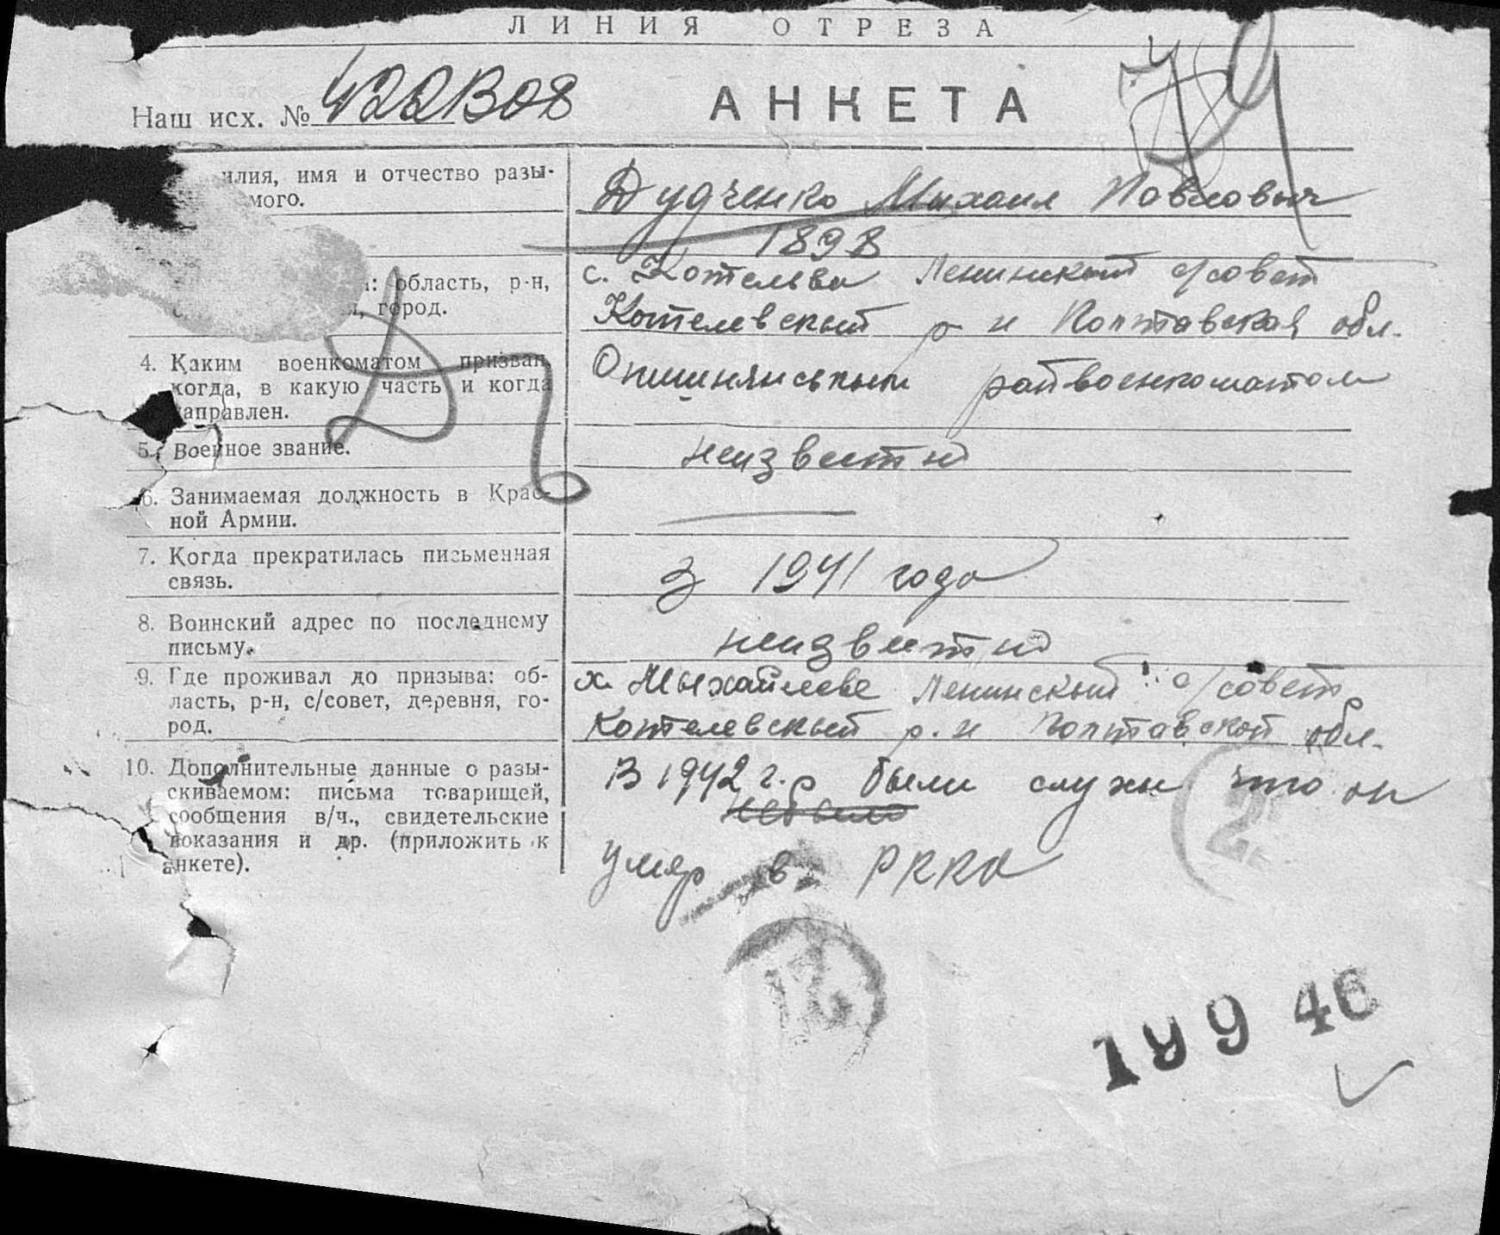 ЛИНИЯ ОТРЕЗА
Наш исх. № АНКЕТА
илия, имя и отчество разы-
мого.
Дудченко Михаил Павлович
1898
область, р-н,
город.
с. Котельва Ленинский с/совет
Котелевский р-н Полтавская обл.
4. Каким военкоматом призван,
когда, в какую часть и когда
аправлен.
райвоенкоматом
5. Военное звание.
неизвестно
6. Занимаемая должность в Крас-
ной Армии.
7. Когда прекратилась письменная
связь.
З 1941 года
8. Воинский адрес по последнему
письму.
неизвестно
9. Где проживал до призыва: об-
ласть, р-н, с/совет, деревня, го-
род.
х. Ленинский с/совет
Котелевский р-н Полтавской обл.
10. Дополнительные данные о разы-
скиваемом: письма товарищей,
сообщения в/ч., свидетельские
показания и др. (приложить к
анкете).
В 1942 г. были слухи что он
умер в РККА